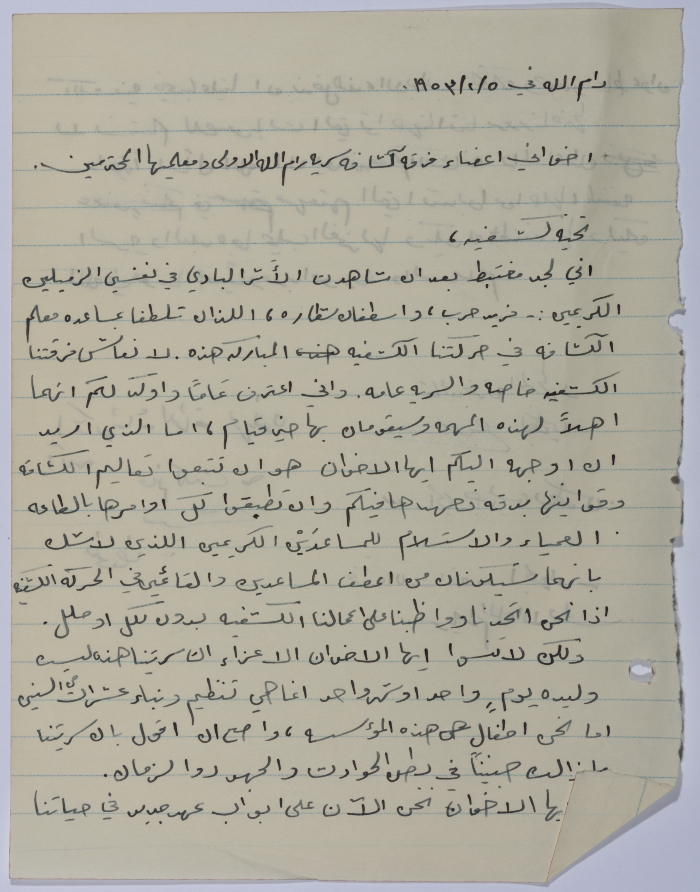 رام الله في ١٩٥٣/٢/٥.
اخواني اعضاء فرقة كشافة سرية رام الله الاولى ومعلميها المحترمين.
تحية كشفيه،
اني لجد مغتبط بعد ان شاهدت الأثر البادي في نفسي الزميلين
الكريمين :- فريد حرب، واسطفان شطاره، اللذان تلطفا بمساعدة معلم
الكشافه في حركتنا الكشفيه هذه المباركه هذه. لانعاش فرقتنا
الكشفيه خاصه والسريه عامه. واني اعترف عامًا واؤكد لكم انهما
اهلاً لهذه المهمه وسيقومان بها خير قيام، اما الذي اريد
ان اوجهه اليكم ايها الاخوان هو ان تتبعوا تعاليم الكشافه
وقوانينها بدقه وان تطبقوا كل اوامرها بالطاعه
العمياء والاستسلام للمساعدَيْن الكريمين اللذين لا شك
بانهما سيكونان من اعطف المساعدين والقائمين في الحركه الكشفيه
اذا نحن اتحدنا وواظبنا على اعمالنا الكشفيه بدون كلل او ملل.
ولكن لا تنسوا ايها الاخوان الاعزاء ان سريتنا هذه ليست
وليده يومٍ واحد او شهر واحد انما هي تنظيم وبناء عشرات من السنين
اما نحن اطفال هذه المؤسسه، واصح ان اقول بان سريتنا
ما زالت جنيناً في بطن الحوادث والجهود والزمان.
ايها الاخوان نحن الآن على ابواب عهد جديد في حياتنا